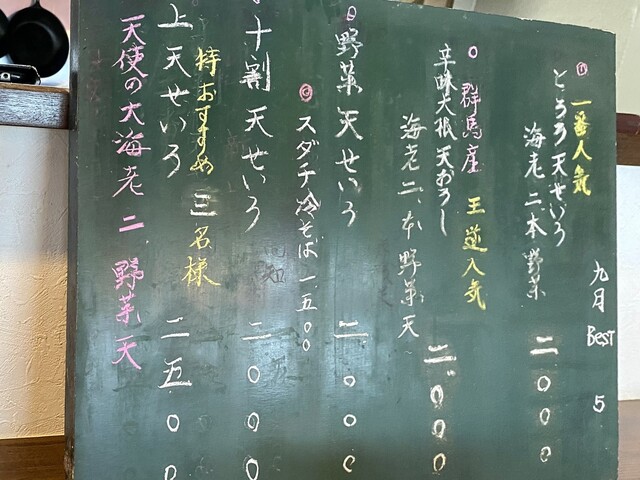 九月 BEST 5
① 一番人気
とろろ天せいろ 二〇〇〇
海老二本 野菜
○ 群馬産 王道人気
辛味大根 天おろし 二〇〇〇
海老二本 野菜天
○ 野菜天せいろ 二〇〇〇
スダチ冷そば 一五〇〇
十割天せいろ 二〇〇〇
特おすすめ 三名様
上天せいろ 二五〇〇
天使の大海老二 野菜天